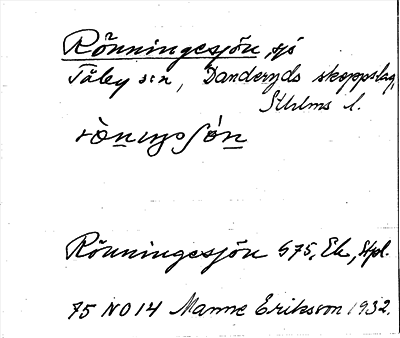 Rönningesjön, sjö
Täby sn, Danderyds skeppslag,
Sthlms l.
Rönningesjön 575, Ek, Stpl.
75 NO 14 Manne Eriksson 1932.